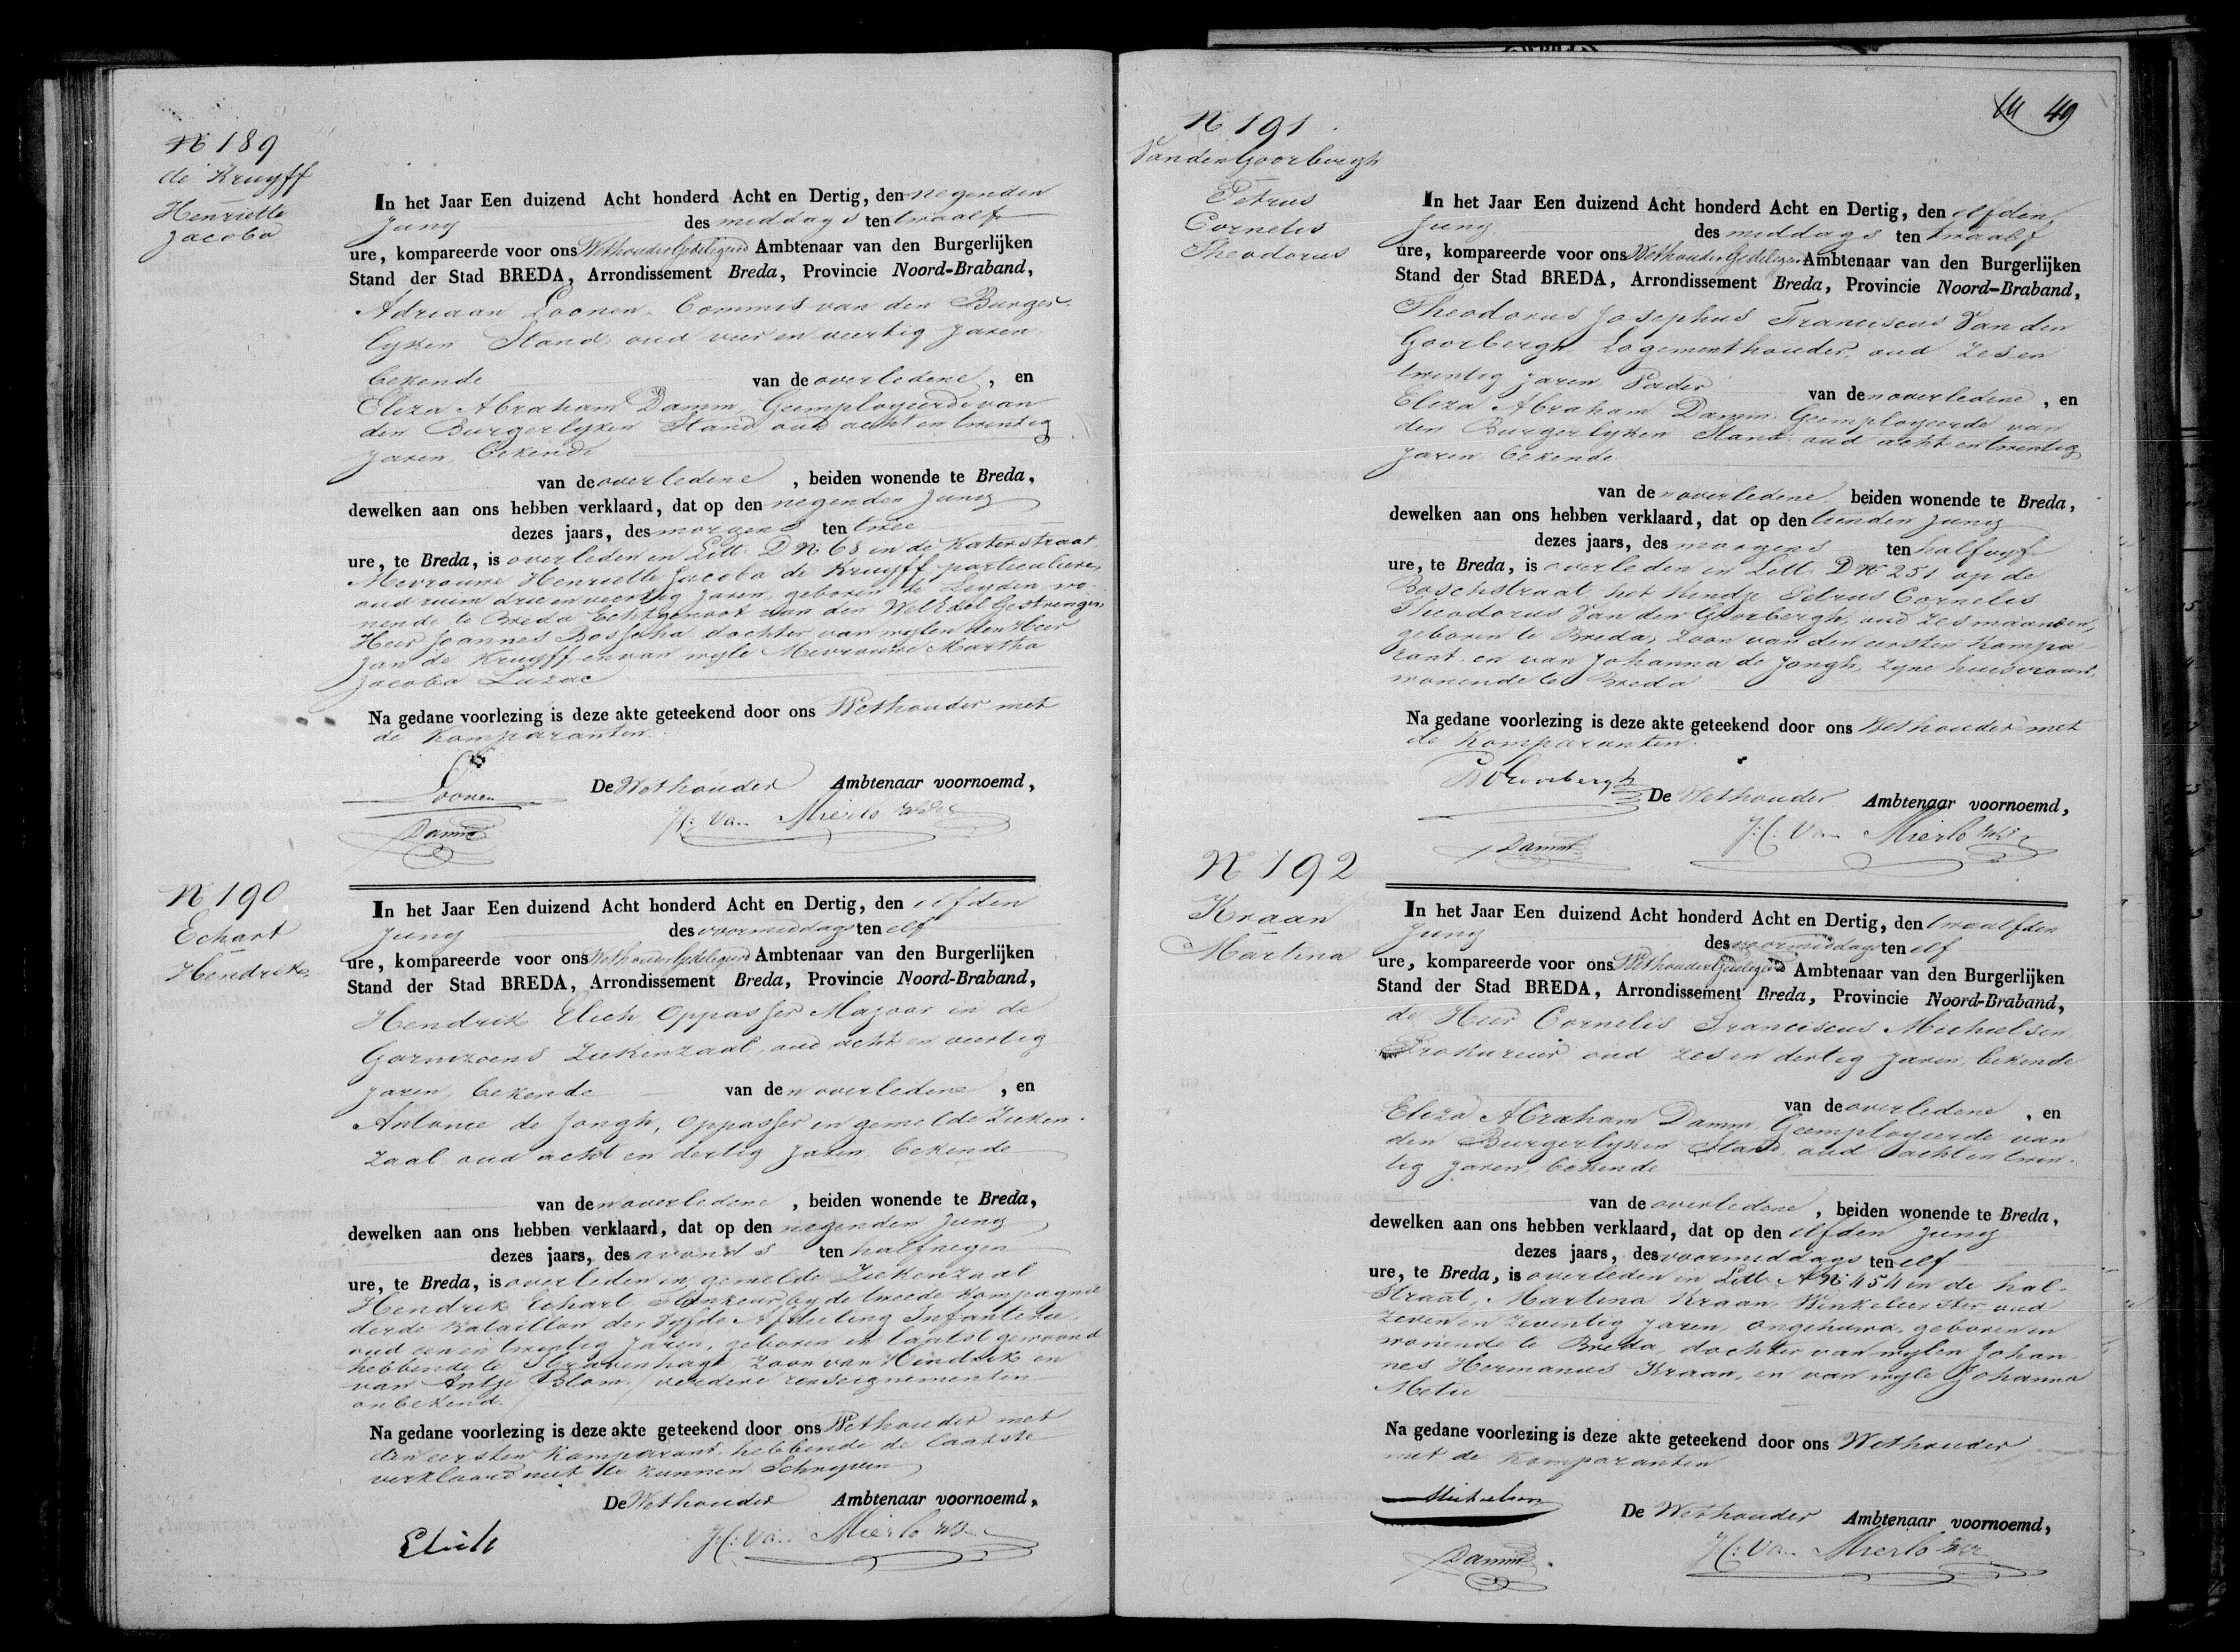 N 189
de Kruyff
Henriette
Jacoba
In het Jaar Een duizend Acht honderd Acht en Dertig, den negenden
Juny des middags ten twaalf
ure, kompareerde voor ons Wethouder Gedelegeerd Ambtenaar van den Burgerlijken
Stand der Stad BREDA, Arrondissement Breda, Provincie Noord-Braband,
Adriaan Loonen, Commis van den Burger-
lyken Stand, oud vier en veertig jaren
bekende van de overledene, en
Eliza Abraham Damm, Geemployeerde van
den Burgerlyken Stand, oud acht en twintig
jaren, bekende
van de overledene, beiden wonende te Breda,
dewelken aan ons hebben verklaard, dat op den negenden Juny
dezes jaars, des morgens ten twee
ure, te Breda, is overleden in Lett. D No 68 in de Katerstraat
Mevrouwe Henriette Jacoba de Kruyff, particuliere,
oud ruim drie en veertig jaren, geboren te Leyden, wo-
nende te Breda Echtgenoot van den WelEdel Gestrengen
Heer Joannes Bosscha dochter van wylen den Heer
Jan de Kruyff en van wyle Mevrouwe Martha
Jacoba Luzac
Na gedane voorlezing is deze akte geteekend door ons Wethouder met
de Komparanten.
Loonen
De Wethouder Ambtenaar voornoemd,
Damm
H: Van Mierlo
N 190
Echart
Hendrik
In het Jaar Een duizend Acht honderd Acht en Dertig, den elfden
Juny des voormiddags ten elf
ure, kompareerde voor ons Wethouder Gedelegeerd Ambtenaar van den Burgerlijken
Stand der Stad BREDA, Arrondissement Breda, Provincie Noord-Braband,
Hendrik Elich Oppasser Majoor in de
Garnizoens Ziekenzaal, oud acht en veertig
jaren, bekende van den overledene, en
Antonie de Jongh, Oppasser in gemelde Zieken-
zaal oud acht en dertig jaren, bekende
van den overledene, beiden wonende te Breda,
dewelken aan ons hebben verklaard, dat op den negenden Juny
dezes jaars, des avonds ten half negen
ure, te Breda, is overleden in gemelde Ziekenzaal
Hendrik Echart, Flankeur by de tweede Kompagnie
derde Bataillon der Vyfde Afdeeling Infanterie,
oud een en twintig jaren, geboren en laatst gewoond
hebbende te S'Gravenhage, Zoon van Hendrik en
van Antje Blom / verdere renseignementen
onbekend.
Na gedane voorlezing is deze akte geteekend door ons Wethouder met
den eersten Komparant, hebbende de laatste
verklaard niet te kunnen Schryven
De Wethouder Ambtenaar voornoemd,
Elich
H: Van Mierlo
49
N 191
Van den Goorbergh
Petrus
Cornelis
Theodorus
In het Jaar Een duizend Acht honderd Acht en Dertig, den elfden
Juny des middags ten twaalf
ure, kompareerde voor ons Wethouder Gedelegeerd Ambtenaar van den Burgerlijken
Stand der Stad BREDA, Arrondissement Breda, Provincie Noord-Braband,
Theodorus Josephus Franciscus Van den
Goorbergh Logementhouder, oud zes en
twintig jaren Vader van den overledene, en
Eliza Abraham Damm, Geemployeerde van
den Burgerlyken Stand, oud acht en twintig
jaren bekende
van den overledene beiden wonende te Breda,
dewelken aan ons hebben verklaard, dat op den tienden Juny
dezes jaars, des morgens ten half vyf
ure, te Breda, is overleden in Lett. D No 251 op de
Boschstraat, het Kindje Petrus Cornelis
Theodorus Van den Goorbergh, oud zes maanden,
geboren te Breda, Zoon van den eersten Kompa-
rant, en van Johanna de Jongh, zyne huisvrouw,
wonende te Breda
Na gedane voorlezing is deze akte geteekend door ons Wethouder met
de Komparanten.
De Wethouder Ambtenaar voornoemd,
Damm
H: Van Mierlo
N 192
Kraan
Martina
In het Jaar Een duizend Acht honderd Acht en Dertig, den twaalfden
Juny des voormiddags ten elf
ure, kompareerde voor ons Wethouder Gedelegeerd Ambtenaar van den Burgerlijken
Stand der Stad BREDA, Arrondissement Breda, Provincie Noord-Braband,
de Heer Cornelis Franciscus Michielsen
Prokureur oud zes en dertig jaren, bekende
van de overledene, en
Eliza Abraham Damm Geemployeerde van
den Burgerlyken Stand, oud acht en twin-
tig jaren, bekende
van de overledene, beiden wonende te Breda,
dewelken aan ons hebben verklaard, dat op den elfden Juny
dezes jaars, des voormiddags ten elf
ure, te Breda, is overleden in Lett. A No 454 in de hal-
straat, Martina Kraan, Winkelierster oud
zeven en zeventig jaren, ongehuwd, geboren en
wonende te Breda, dochter van wylen Johan-
nes Hermanus Kraan, en van wyle Johanna
Metie
Na gedane voorlezing is deze akte geteekend door ons Wethouder
met de Komparanten
Michielsen
De Wethouder Ambtenaar voornoemd,
Damm
H: Van Mierlo